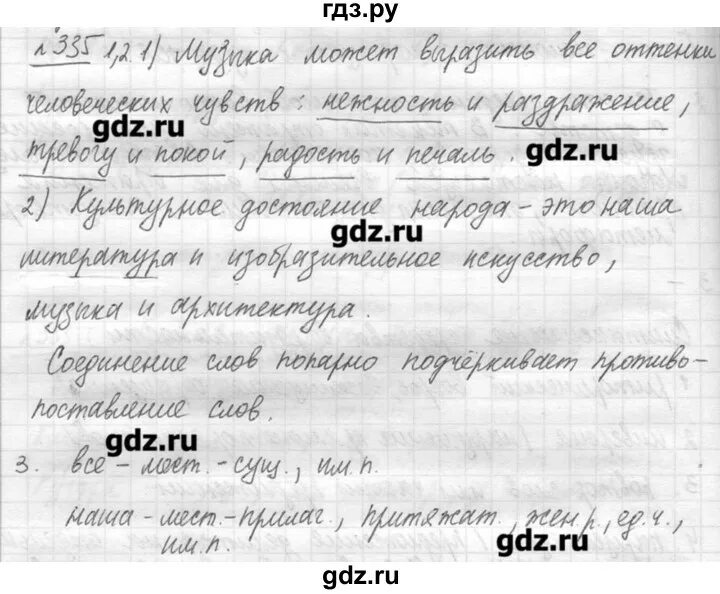 гдз.ру
№335 1,2. 1) Музыка может выразить все оттенки
человеческих чувств: нежность и раздражение,
gdz.ru
тревогу и покой, радость и печаль. gdz.ru
2) Культурное достояние народа – это наша
gdz.ru
литература и изобразительное искусство,
музыка и архитектура.
Соединение слов попарно подчёркивает противо-
поставление слов.
gdz.ru
3. все – мест.-сущ., им.п.
наша – мест.-прилаг., притяжат., жен.р., ед.ч.,
им.п.
gdz.ru
gdz.ru